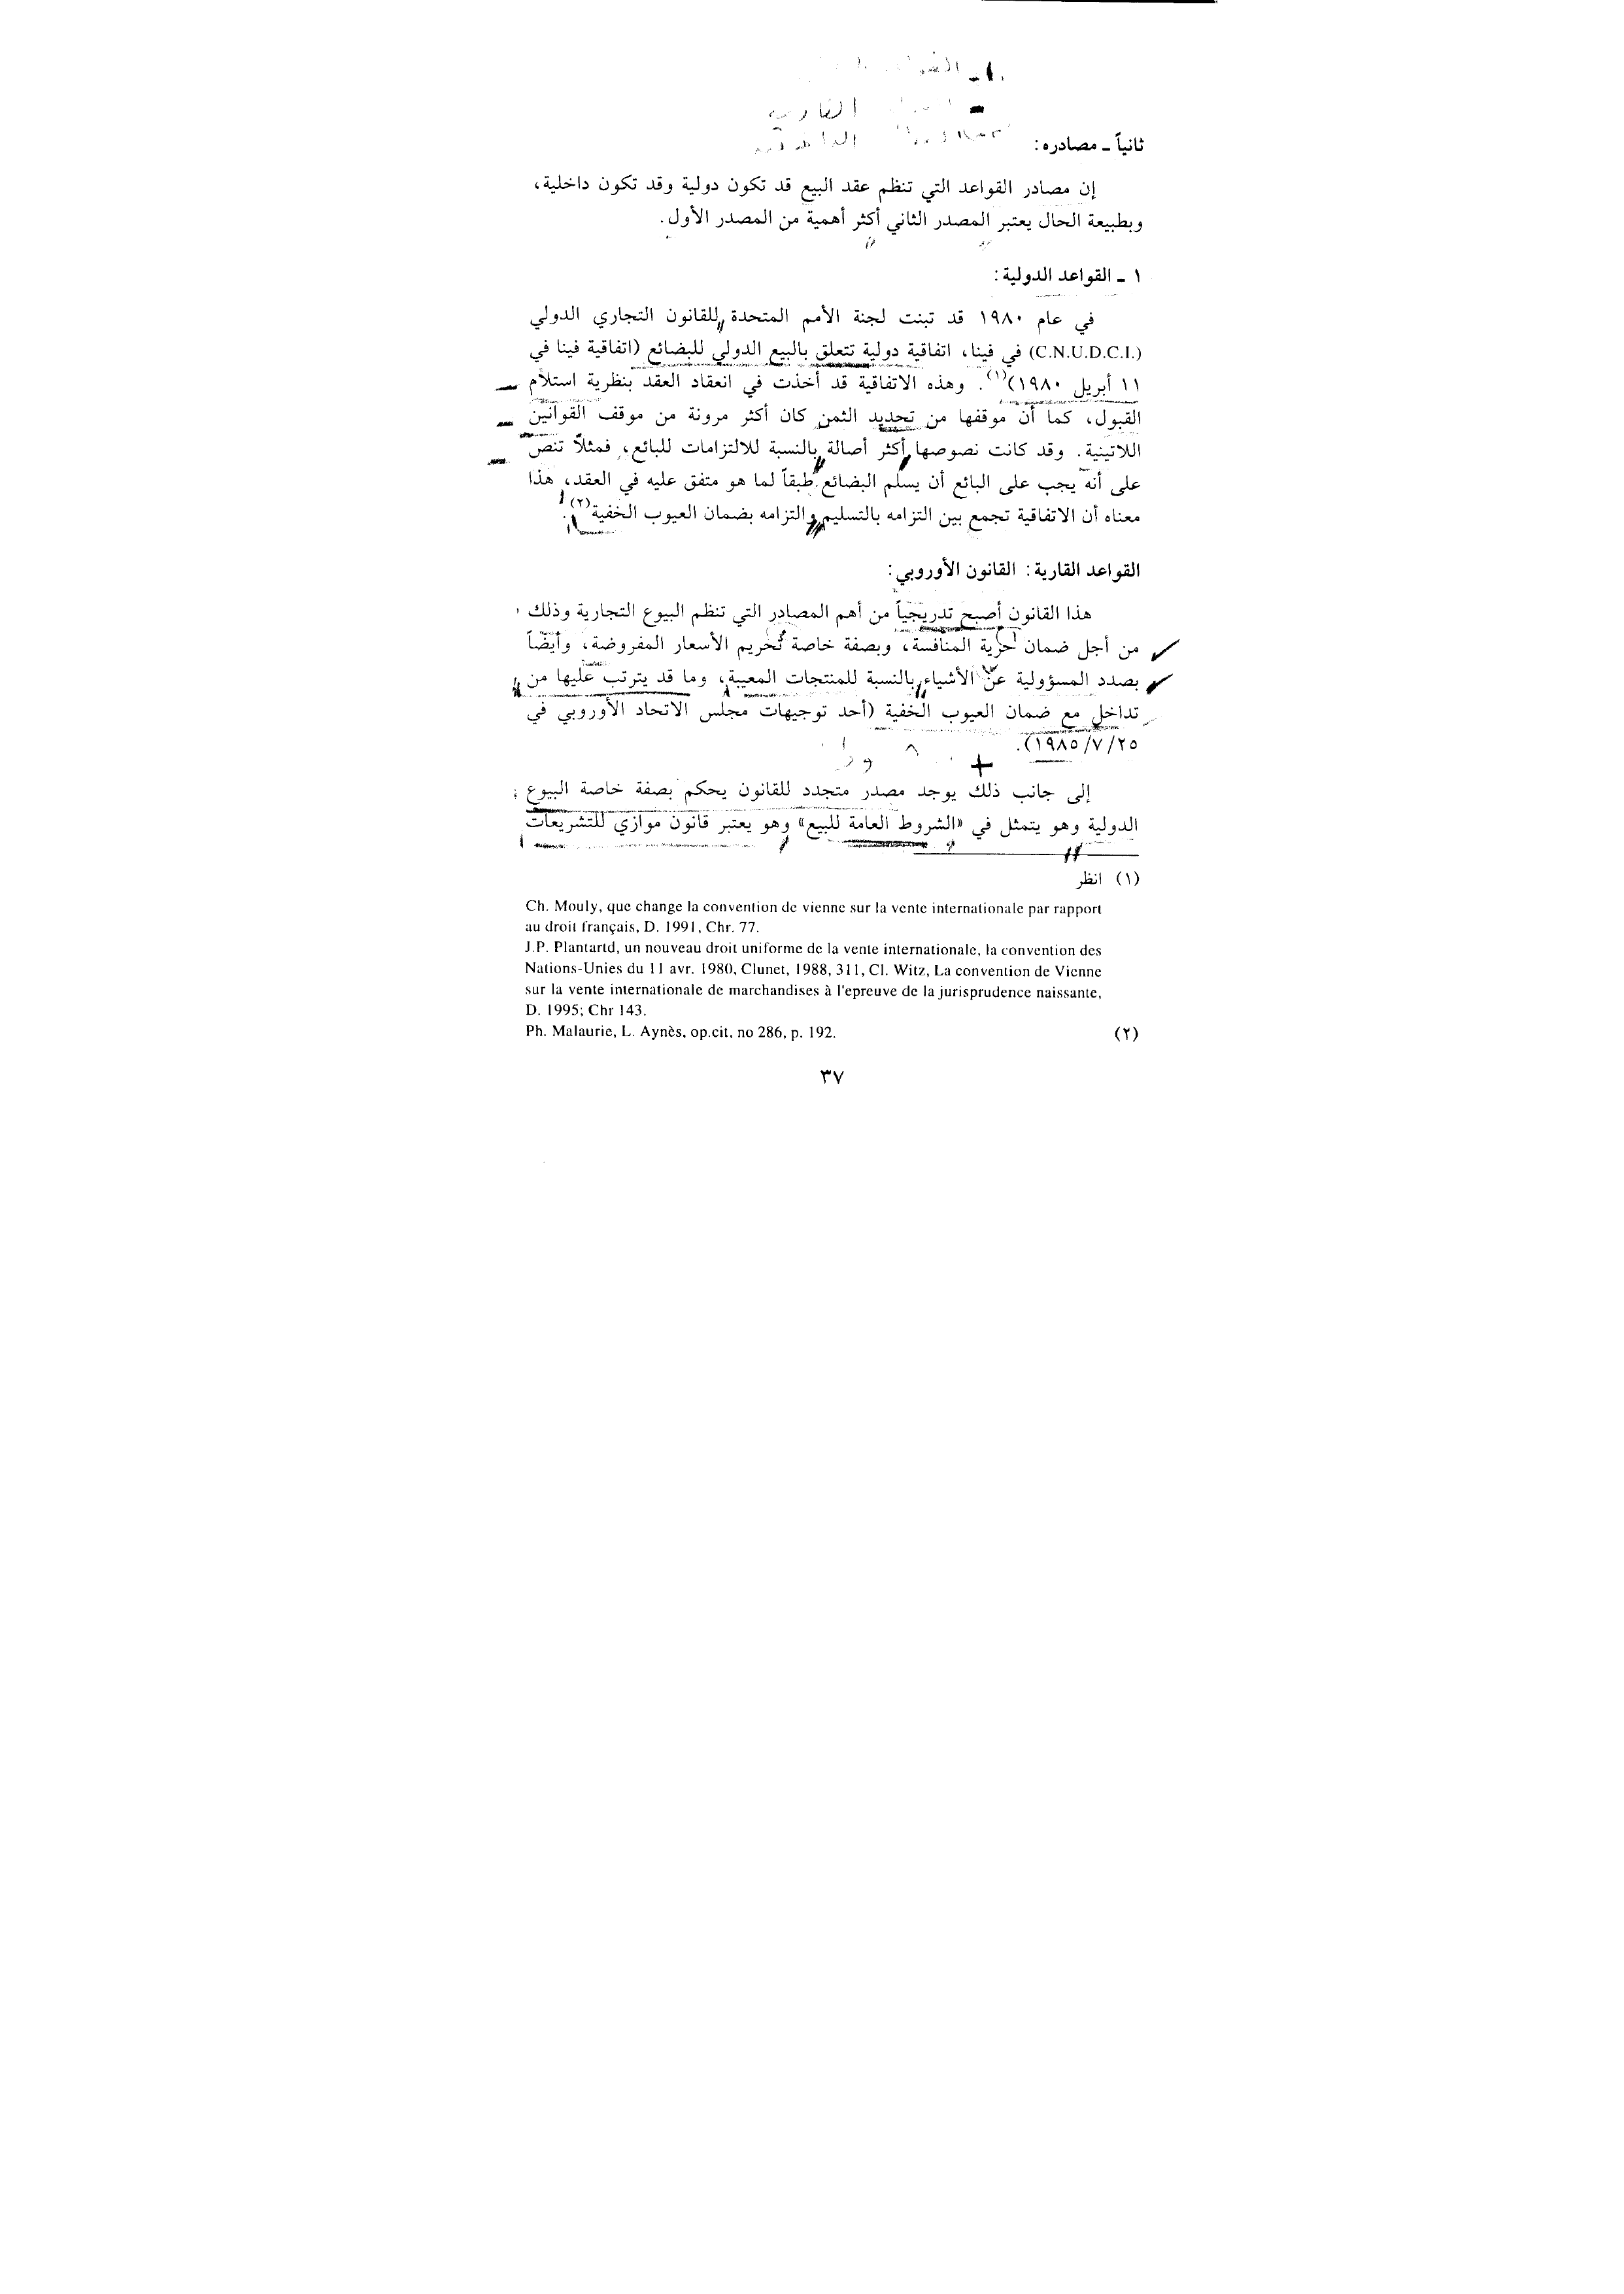 ثانياً ـ مصادره:
إن مصادر القواعد التي تنظم عقد البيع قد تكون دولية وقد تكون داخلية،
وبطبيعة الحال يعتبر المصدر الثاني أكثر أهمية من المصدر الأول.
١ ـ القواعد الدولية:
في عام ١٩٨٠ قد تبنت لجنة الأمم المتحدة للقانون التجاري الدولي
(C.N.U.D.C.I.) في فينا، اتفاقية دولية تتعلق بالبيع الدولي للبضائع (اتفاقية فينا في
١١ أبريل ١٩٨٠)(١). وهذه الاتفاقية قد أخذت في انعقاد العقد بنظرية استلام
القبول، كما أن موقفها من تحديد الثمن كان أكثر مرونة من موقف القوانين
اللاتينية. وقد كانت نصوصها أكثر أصالة بالنسبة للالتزامات للبائع، فمثلاً تنص
على أنه يجب على البائع أن يسلم البضائع طبقاً لما هو متفق عليه في العقد، هذا
معناه أن الاتفاقية تجمع بين التزامه بالتسليم والتزامه بضمان العيوب الخفية(٢).
القواعد القارية: القانون الأوروبي:
هذا القانون أصبح تدريجياً من أهم المصادر التي تنظم البيوع التجارية وذلك
من أجل ضمان حرية المنافسة، وبصفة خاصة تحريم الأسعار المفروضة، وأيضاً
بصدد المسؤولية عن الأشياء بالنسبة للمنتجات المعيبة، وما قد يترتب عليها من
تداخل مع ضمان العيوب الخفية (أحد توجيهات مجلس الاتحاد الأوروبي في
٢٥/٧/١٩٨٥).
إلى جانب ذلك يوجد مصدر متجدد للقانون يحكم بصفة خاصة البيوع
الدولية وهو يتمثل في «الشروط العامة للبيع» وهو يعتبر قانون موازي للتشريعات
(١) انظر
Ch. Mouly, que change la convention de vienne sur la vente internationale par rapport
au droit français, D. 1991, Chr. 77.
J.P. Plantartd, un nouveau droit uniforme de la vente internationale, la convention des
Nations-Unies du 11 avr. 1980, Clunet, 1988, 311, Cl. Witz, La convention de Vienne
sur la vente internationale de marchandises à l'epreuve de la jurisprudence naissante,
D. 1995; Chr 143.
(٢) Ph. Malaurie, L. Aynès, op.cit, no 286, p. 192.
٣٧